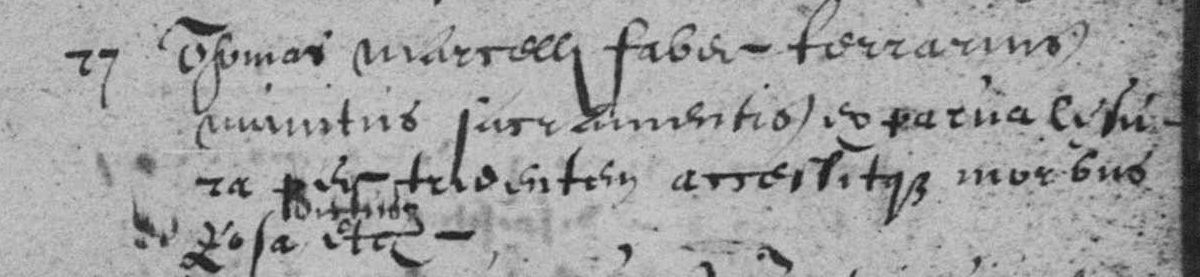 27 Thomas Marcelly faber ferrarius
munitus sacramentis ex parva lesu-
ra per tridentem accessitque morbus
Rosa etc